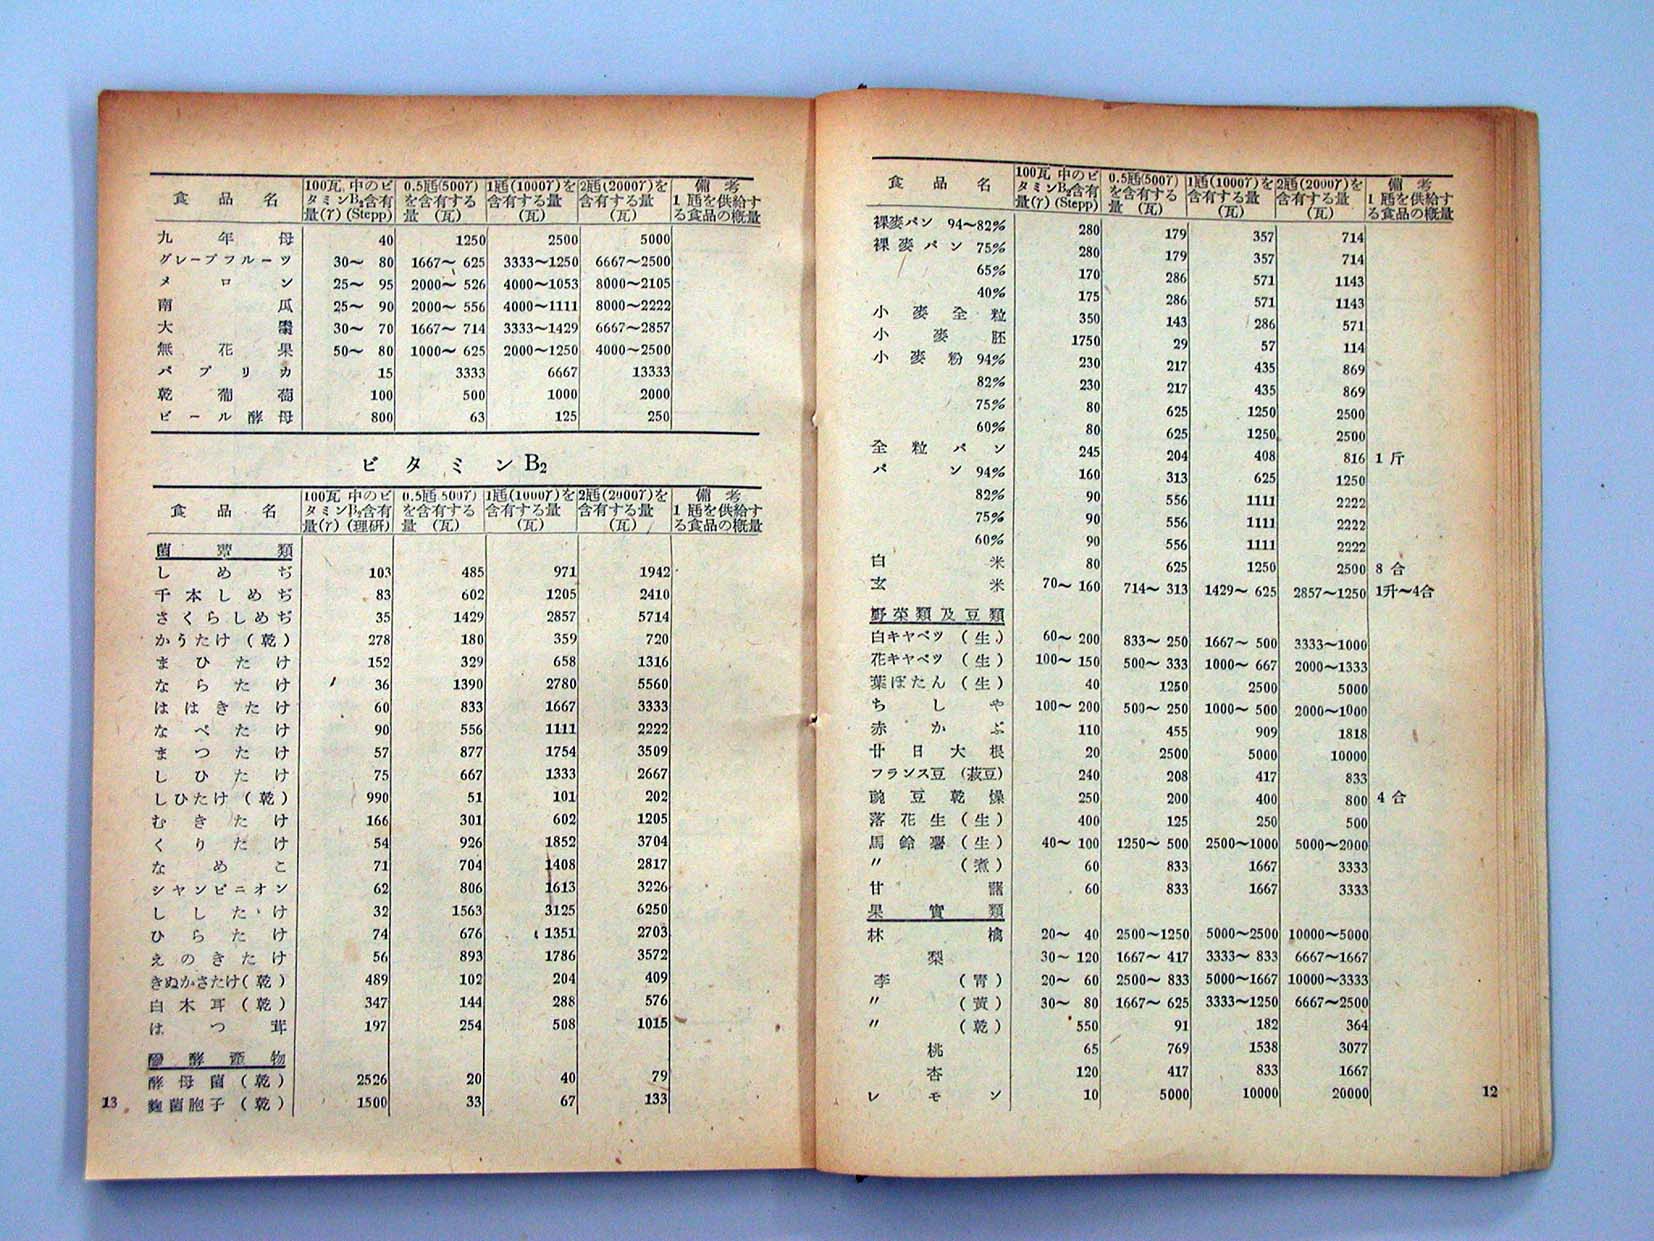 食品名 100瓦中のビタミンB₂含有量(γ)(Stepp) 0.5瓱(500γ)を含有する量(瓦) 1瓱(1000γ)を含有する量(瓦) 2瓱(2000γ)を含有する量(瓦) 備考 1瓱を供給する食品の概量
裸麥パン 94〜82% 280 179 357 714
裸麥パン 75% 280 179 357 714
65% 170 286 571 1143
40% 175 286 571 1143
小麥全粒 350 143 286 571
小麥胚 1750 29 57 114
小麥粉 94% 230 217 435 869
82% 230 217 435 869
75% 80 625 1250 2500
60% 80 625 1250 2500
全粒パン 245 204 408 816 1斤
パン 94% 160 313 625 1250
82% 90 556 1111 2222
75% 90 556 1111 2222
60% 90 556 1111 2222
白米 80 625 1250 2500 8合
玄米 70〜160 714〜313 1429〜625 2857〜1250 1升〜4合
野菜類及豆類
白キヤベツ(生) 60〜200 833〜250 1667〜500 3333〜1000
花キヤベツ(生) 100〜150 500〜333 1000〜667 2000〜1333
葉ぼたん(生) 40 1250 2500 5000
ちしや 100〜200 500〜250 1000〜500 2000〜1000
赤かぶ 110 455 909 1818
廿日大根 20 2500 5000 10000
フランス豆(莢豆) 240 208 417 833
豌豆乾燥 250 200 400 800 4合
落花生(生) 400 125 250 500
馬鈴薯(生) 40〜100 1250〜500 2500〜1000 5000〜2000
〃(煮) 60 833 1667 3333
甘藷 60 833 1667 3333
果實類
林檎 20〜40 2500〜1250 5000〜2500 10000〜5000
梨 30〜120 1667〜417 3333〜833 6667〜1667
李(靑) 20〜60 2500〜833 5000〜1667 10000〜3333
〃(黃) 30〜80 1667〜625 3333〜1250 6667〜2500
〃(乾) 550 91 182 364
桃 65 769 1538 3077
杏 120 417 833 1667
レモン 10 5000 10000 20000
12
食品名 100瓦中のビタミンB₂含有量(γ)(Stepp) 0.5瓱(500γ)を含有する量(瓦) 1瓱(1000γ)を含有する量(瓦) 2瓱(2000γ)を含有する量(瓦) 備考 1瓱を供給する食品の概量
九年母 40 1250 2500 5000
グレープフルーツ 30〜80 1667〜625 3333〜1250 6667〜2500
メロン 25〜95 2000〜526 4000〜1053 8000〜2105
南瓜 25〜90 2000〜556 4000〜1111 8000〜2222
大 30〜70 1667〜714 3333〜1429 6667〜2857
無花果 50〜80 1000〜625 2000〜1250 4000〜2500
パプリカ 15 3333 6667 13333
乾葡萄 100 500 1000 2000
ビール酵母 800 63 125 250
ビタミンB₂
食品名 100瓦中のビタミンB₂含有量(γ)(理研) 0.5瓱500γ)を含有する量(瓦) 1瓱(1000γ)を含有する量(瓦) 2瓱(2000γ)を含有する量(瓦) 備考 1瓱を供給する食品の概量
菌蕈類
しめぢ 103 485 971 1942
千本しめぢ 83 602 1205 2410
さくらしめぢ 35 1429 2857 5714
かうたけ(乾) 278 180 359 720
まひたけ 152 329 658 1316
ならたけ 36 1390 2780 5560
ははきたけ 60 833 1667 3333
なべたけ 90 556 1111 2222
まつたけ 57 877 1754 3509
しひたけ 75 667 1333 2667
しひたけ(乾) 990 51 101 202
むきたけ 166 301 602 1205
くりたけ 54 926 1852 3704
なめこ 71 704 1408 2817
シヤンピニオン 62 806 1613 3226
ししたけ 32 1563 3125 6250
ひらたけ 74 676 1351 2703
えのきたけ 56 893 1786 3572
きぬかさたけ(乾) 489 102 204 409
白木耳(乾) 347 144 288 576
はつ茸 197 254 508 1015
醱酵產物
酵母菌(乾) 2526 20 40 79
麴菌胞子(乾) 1500 33 67 133
13